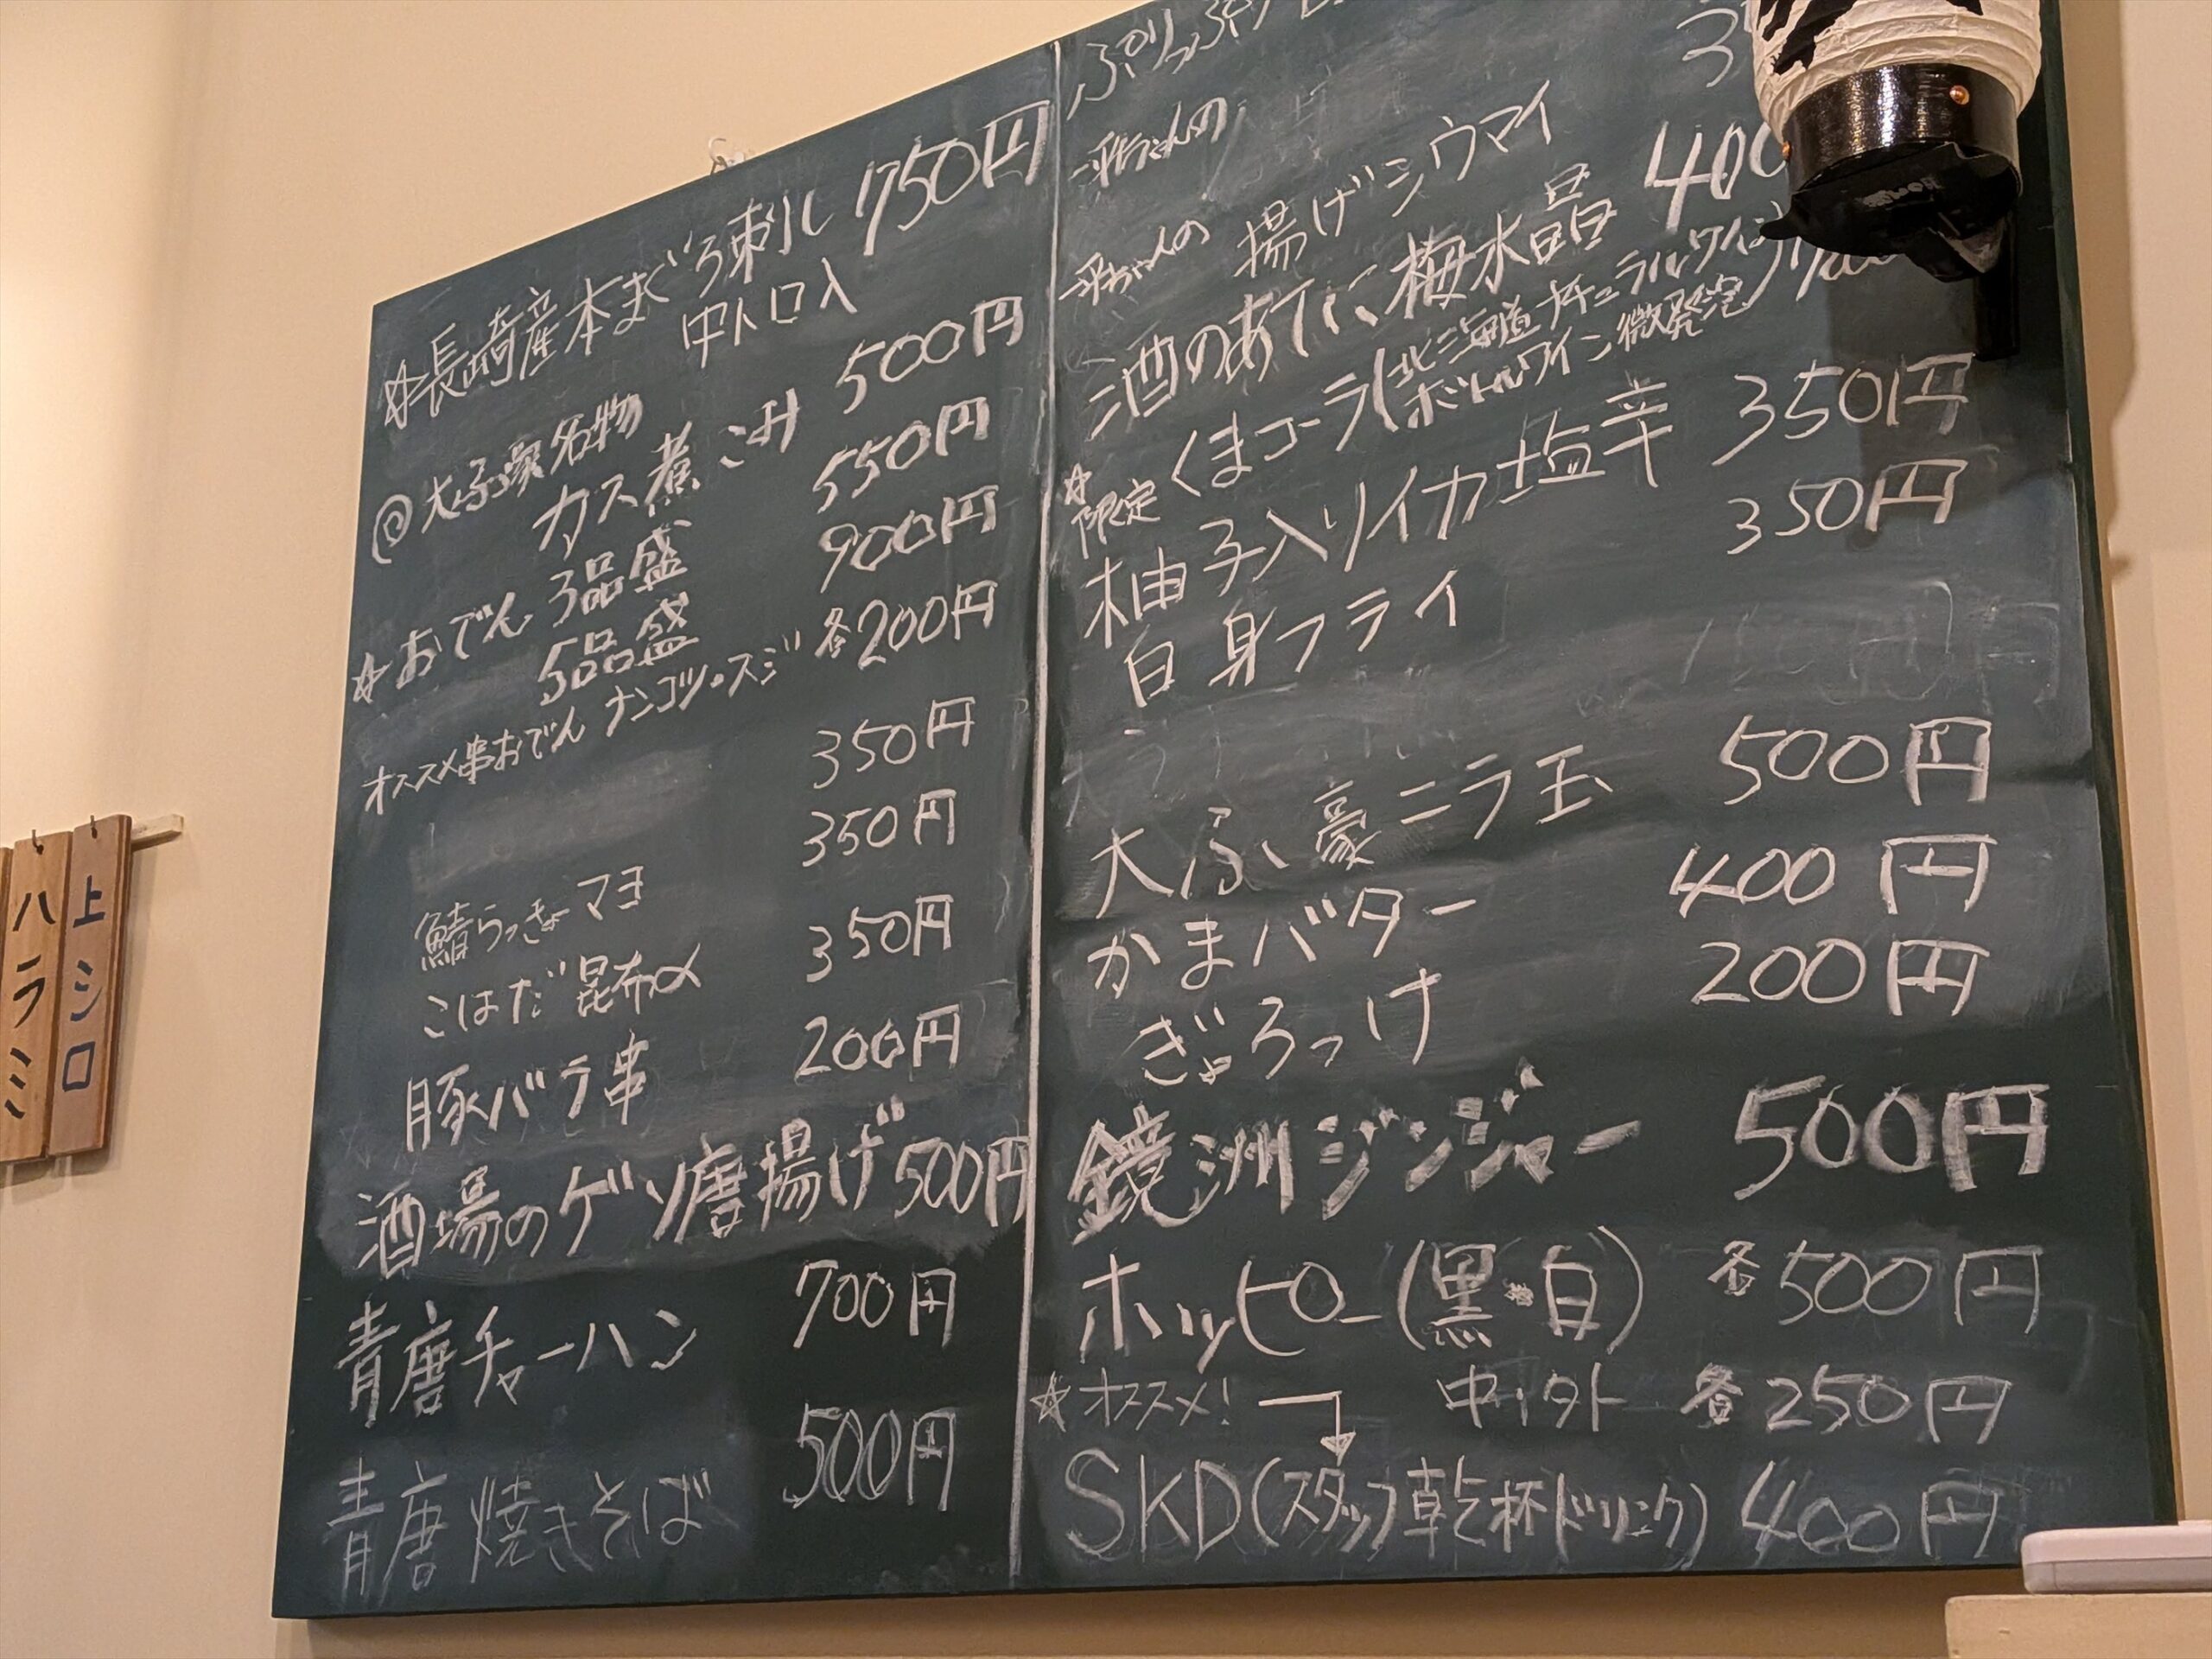 ☆長崎産本まぐろ刺し 1750円
中トロ入
◎大ふ豪名物
カス煮こみ 500円
☆おでん 3品盛 550円
5品盛 900円
オススメ串おでん ナンコツ・スジ 各200円
鯖らっきょーマヨ 350円
こはだ昆布〆 350円
豚バラ串 350円
200円
酒場のゲソ唐揚げ 500円
青唐チャーハン 700円
青唐焼きそば 500円
一平ちゃんの
一平ちゃんの 揚げシウマイ
酒のあてに梅水晶 400
☆限定 くまコーラ(北海道ナチュラルワイン
ボトルワイン微発泡)
柚子入りイカ塩辛 350円
白身フライ 350円
大ふ豪ニラ玉 500円
かまバター 400円
ぎょろっけ 200円
鏡洲ジンジャー 500円
ホッピー(黒・白) 各500円
中・外 各250円
☆オススメ!
SKD(スタッフ乾杯ドリンク) 400円
上シロ
ハラミ